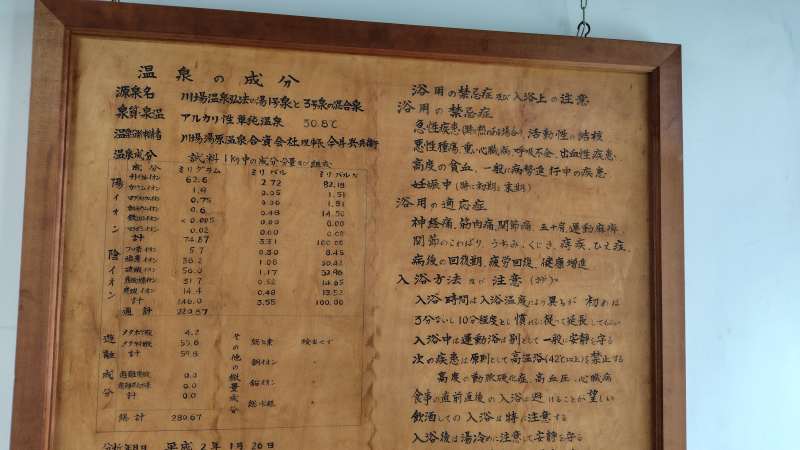 温泉の成分
源泉名 川場温泉弘法の湯1号泉と3号泉の混合泉
泉質泉温 アルカリ性単純温泉 50.8℃
川場湯原温泉合資会社
温泉成分 試料1kg中の成分分量及び組成
成分 ミリグラム ミリバル ミリバル%
陽イオン
ナトリウムイオン 62.6 2.72 82.18
カリウムイオン 1.9 0.05 1.51
マグネシウムイオン 0.75 0.06 1.81
カルシウムイオン 9.6 0.48 14.50
<0.005 0.00 0.00
マンガンイオン 0.02 0.00 0.00
計 74.87 3.31 100.00
陰イオン
フッ素イオン 5.7 0.30 8.45
塩素イオン 38.2 1.08 30.42
硫酸イオン 56.0 1.17 32.96
31.7 0.52 14.65
14.4 0.48 13.52
計 146.0 3.55 100.00
通計 220.87
遊離成分
メタケイ酸 55.6
計 59.8
0.0
0.0
計 0.0
総計 280.67
その他の微量成分
総ヒ素 検出せず
銅イオン 〃
鉛イオン 〃
総水銀 〃
分析年月日 平成2年1月26日
浴用の禁忌症及び入浴上の注意
浴用の禁忌症
急性疾患(特に熱のある場合)、活動性の結核
悪性腫瘍、重い心臓病、呼吸不全、出血性疾患、
高度の貧血、一般に病勢進行中の疾患
妊娠中(特に初期と末期)
浴用の適応症
神経痛、筋肉痛、関節痛、五十肩、運動麻痺、
関節のこわばり、うちみ、くじき、痔疾、ひえ症、
病後の回復期、疲労回復、健康増進
入浴方法及び注意
入浴時間は入浴温度により異るが 初めは
3分ないし10分程度とし慣れるに従って延長してもよい
入浴中は運動浴は別として一般に安静を守る
次の疾患は原則として高温浴(42℃以上)を禁止する
高度の動脈硬化症、高血圧、心臓病
食事の直前直後の入浴は避けることが望しい
飲酒しての入浴は特に注意する
入浴後は湯冷めに注意して安静を守る